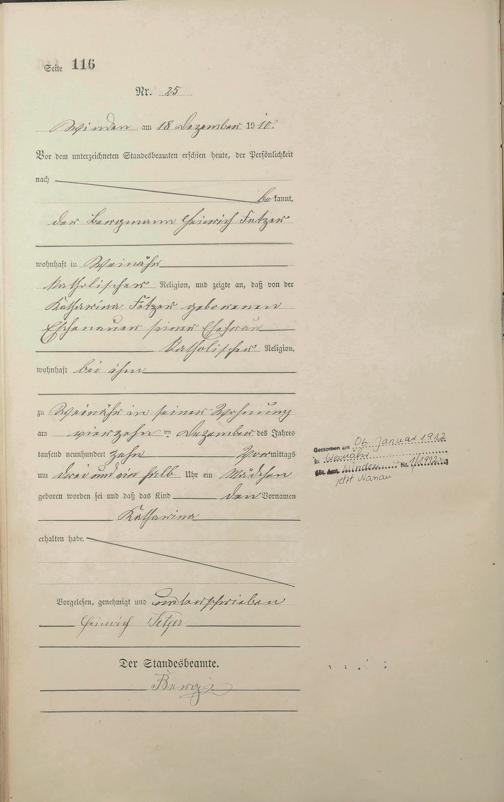 Seite 116
Nr. 25
Winden am 18 Dezember 1910.
Vor dem unterzeichneten Standesbeamten erschien heute, der Persönlichkeit
nach
be kannt,
der Bergmann Heinrich Fetzer
wohnhaft in Weinähr
katholischer Religion, und zeigte an, daß von der
Katharina Fetzer geborenen
Eschenauer seiner Ehefrau
katholischer Religion,
wohnhaft bei ihm
zu Weinähr in seiner Wohnung
am vierzehn ten Dezember des Jahres
tausend neunhundert zehn Vormittags
um drei und ein halb Uhr ein Mädchen
geboren worden sei und daß das Kind den Vornamen
Katharina
erhalten habe.
Vorgelesen, genehmigt und unterschrieben
Heinrich Fetzer
Der Standesbeamte.
Gestorben am 06. Januar 1992
in
Sta. Amt Winden Nr. 1/1992
jetzt Nassau